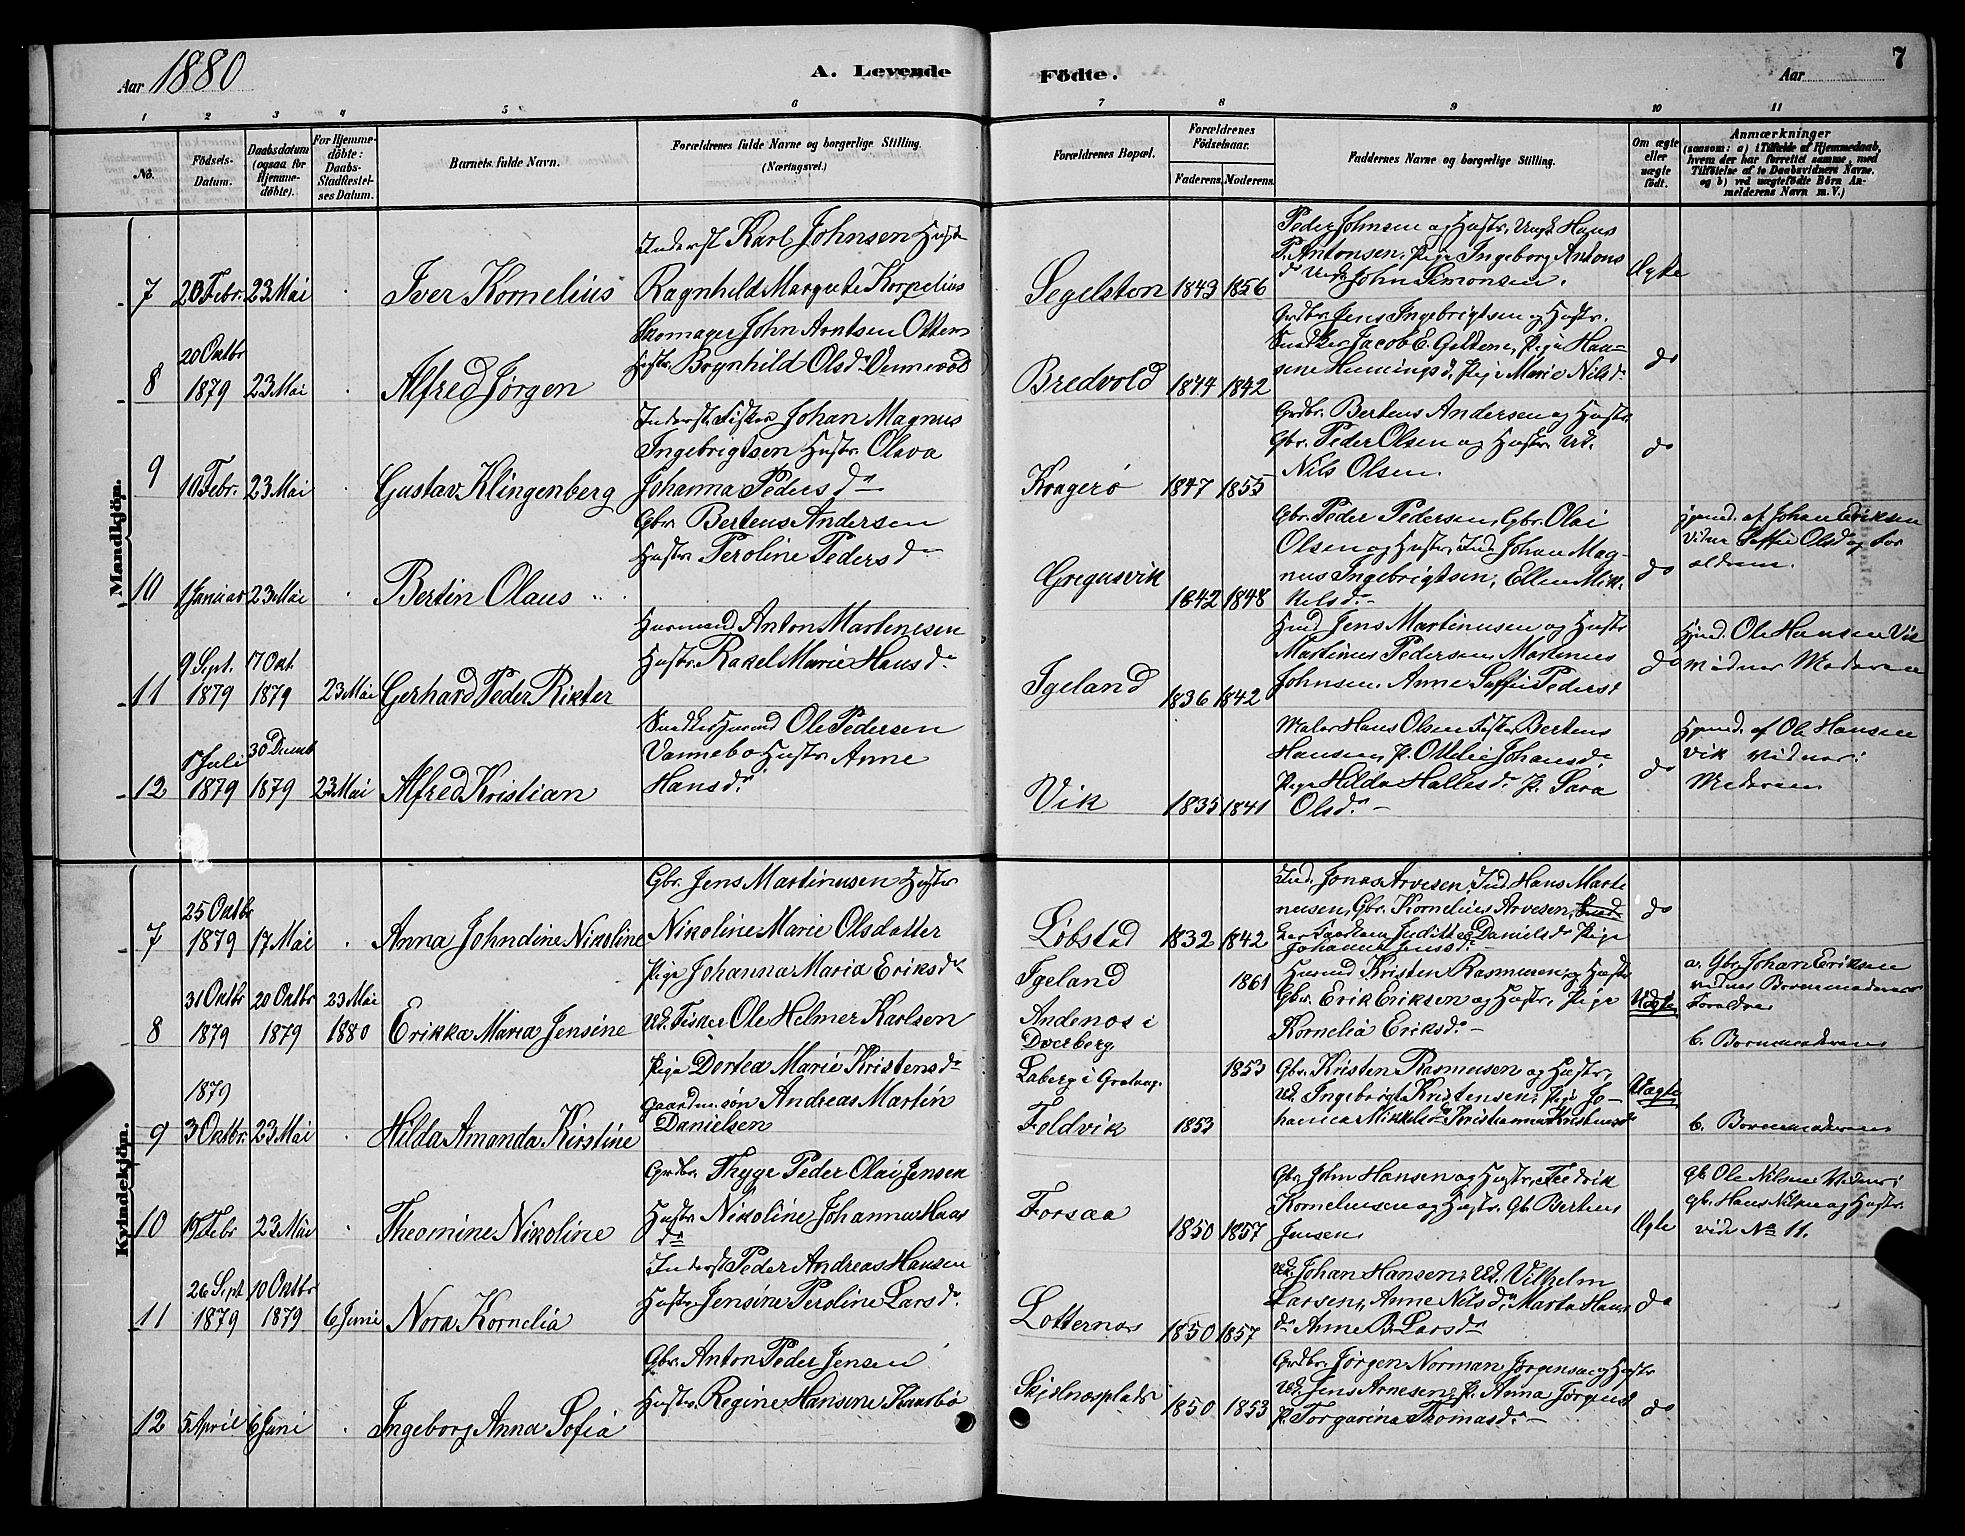 Aar 1880
A. Levende
Födte.
Aar
7
1 2 3 4 5 6 7 8 9 10 11
No.
Födsels-Datum.
Daabsdatum (ogsaa for Hjemme-döbte).
For Hjemme-döbte: Daabs-Stadfæstel-ses Datum.
Barnets fulde Navn.
Forældrenes fulde Navne og borgerlige Stilling. (Næringsvei.)
Forældrenes Bopæl.
Forældrenes Födselsaar.
Faderens. Moderens.
Faddernes Navne og borgerlige Stilling.
Om ægte eller uægte födt.
Anmærkninger (saasom: a) i Tilfælde af Hjemmedaab, hvem der har forrettet samme, med Tilföielse af to Daabsvidners Navne, og b) ved uægtefödte Börn Anmelderens Navn m. V.)
Mandkjön.
7 20 Febr. 23 Mai Iver Kornelius
Inderst Karl Johnsen Hustr
Ragnhild Margrete Kornelius
Segelston 1843 1856
Peder Johnsen og Hustr, Ungk Hans
P. Antonsen, Pige Ingeborg Antons
dr Ungk John Simonsen.
Ægte
8 20 Oktbr 1879 23 Mai Alfred Jørgen
Skomager John Arntsen
Hustr. Bognhild Olsdr
Bredvold 1844 1842
Grdbr. Jens Ingebrigtsen og Hustr.
Snedker Jacob E. Pige Han-
sine Hemmingsdr, Pige Marie Nilsdr
do
9 10 Febr. 23 Mai Gustav Klingenberg
Inderst. Fisker Johan Magnus
Ingebrigtsen Hustr Olava
Johanna Pedersdr
Kragerø 1847 1855
Grdbr. Berteus Andersen og Hustr.
Gbr. Peder Olsen og Hustr. Ud.
Nils Olsen
do
10 1 Januar 23 Mai Bertin Olaus
Gbr. Berteus Andersen
Hustr. Peroline Pedersdr
Gregusvik 1842 1848
Gbr. Peder Pedersen, Gbr. Olai
Olsen og Hustr, Ind. Johan Mag-
nus Ingebrigtsen, Ellen Mik-
kelsdr.
do
Hjemd. af Johan Eriksen
Vidner Soffie Olsd og for
ældrene.
11 9 Sept. 1879 17 Okt. 1879 23 Mai Gerhard Peder Rikter
Husmand Anton Martinesen
Hustr. Rakel Marie Hansdr.
Igeland 1836 1842
Husmd Jens Martinusen og Hustr
Martinus Pedersen, Martinus
Johnsen. Anne Soffie Peders
do
Hjmd. Ole Hansen Vik
Vidner Moderen
12 Juli 1879 30 Decemb 1879 23 Mai Alfred Kristian
Snedker Husmd Ole Pedersen
Vannebo Hustr. Anne
Hansdr.
Vik 1835 1841
Maler Hans Olsen Fisker Berteus
Hansen, P. Ottilie Johansdr
Pige Hilda Hallesdr P. Sara
Olsdr.
do
Hjemd. af Ole Hansen
Vik Vidner:
Moderen
Kvindekjön.
7 25 Oktbr 1879 17 Mai Anna Johndine Nikoline
Gbr. Jens Martinusen Hustr
Nikoline Marie Olsdatter
Løbstad 1832 1842
Ind. Jonas Arvesen, Ind Hans Marti
nusen, Gbr. Kornelius Arvesen,
Judithe Danielsdr Pige
Johanna Jensdr
do
8 31 Oktbr 1879 20 Oktbr 1879 23 Mai 1880 Erikka Maria Jensine
Pige Johanna Maria Eriksdr
Ud. Fisker Ole Helmer Karlsen
Igeland
Andenes i
Dverberg
1861
Husmd Kristen Rasmusen og Hustr
Gbr. Erik Eriksen og Hustr, Pige
Kornelia Eriksdr
Uægte
a. Gbr. Johan Eriksen
vidner Barnemoderens
Forældre
b. Barnemoderen
9 1879 3 Oktbr. 23 Mai Hilda Amanda Kirstine
Pige Dortea Marie Kristensdr
Gaardm.søn Andreas Martin
Danielsen
Laberg i Gratang
Foldvik 1853 1853
Gbr. Kristen Rasmusen og Hustr,
Ud. Ingebrigt Kristensen, Pige Jo-
hanna Mikkelsdr Kristianna Kristensdr
Uægte
b. Barnemoderen
10 19 Febr 23 Mai Theomine Nikoline
Grdbr. Thyge Peder Olai Jensen
Hustr. Nikoline Johanna Haas
dr
Forsaa 1850 1857
Gbr. John Hansen og Hustr. Fredrik
Korneliusen og Hustr. Gb. Berteus
Jensen
Ægte
gb. Ole Nilsen Vidner:
gb. Hans Nilsen og Hustr.
vide No 11.
11 26 Sept 1879 10 Oktbr 1879 6 Juni Nora Kornelia
Inderst Peder Andreas Hansen
Hustr. Jensine Peroline Larsdr.
Lotternes 1850 1857
Ud. Johan Hansen, Ud. Vilhelm
Larsen, Anne Nilsdr, Marta Hans
dr Anne B. Larsdr
do
12 5 April 6 Juni Ingeborg Anna Sofia
Gbr. Anton Peder Jensen
Hustr. Regine Hansine Kaarbø
Skjelnesplads 1850 1853
Grdbr. Jørgen Norman Jørgensen og Hustr
Ud. Jens Arnesen, P. Anna Jørgensd
P. Torgarina Thomasdr.
do